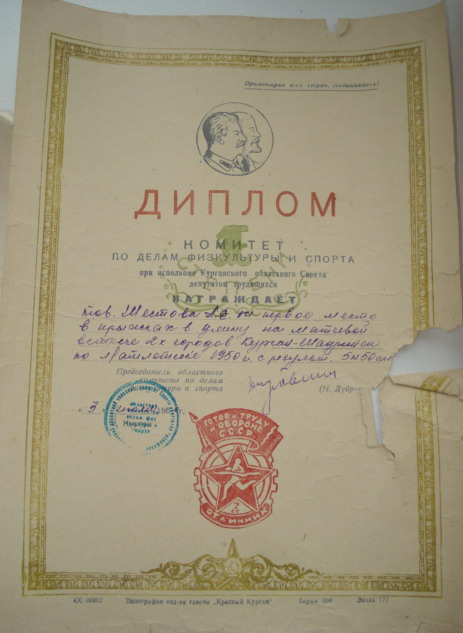 Пролетарии всех стран, соединяйтесь!
ДИПЛОМ
КОМИТЕТ
ПО ДЕЛАМ ФИЗКУЛЬТУРЫ И СПОРТА
при исполкоме Курганского областного Совета
депутатов трудящихся
НАГРАЖДАЕТ
тов. Шестова за первое место
в прыжках в длину на матчевой
встрече 2х городов Курган-Шадринск
по л/атлетике 1950 г. с результ. 5м 50см
Председатель областного
комитета по делам
физкультуры и спорта
(П. Дубров
3
ГОТОВ К ТРУДУ
И ОБОРОНЕ
СССР
2
ОТЛИЧНИК
Типография изд-ва газеты „Красный Курган"
Тираж 300
Заказ